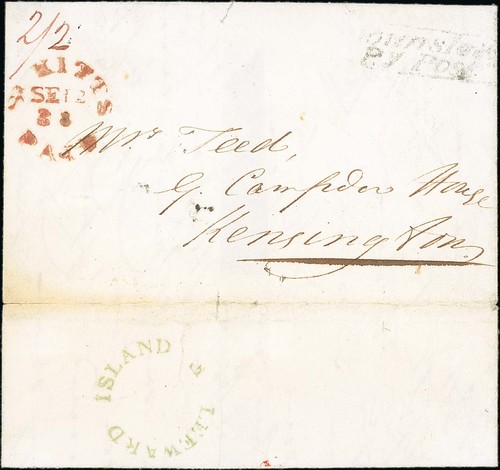 2/2
S KITTS
SE 12
38
PAID
Py Post
Mrs Teed,
G. Campden House
Kensington
LEEWARD ISLANDS